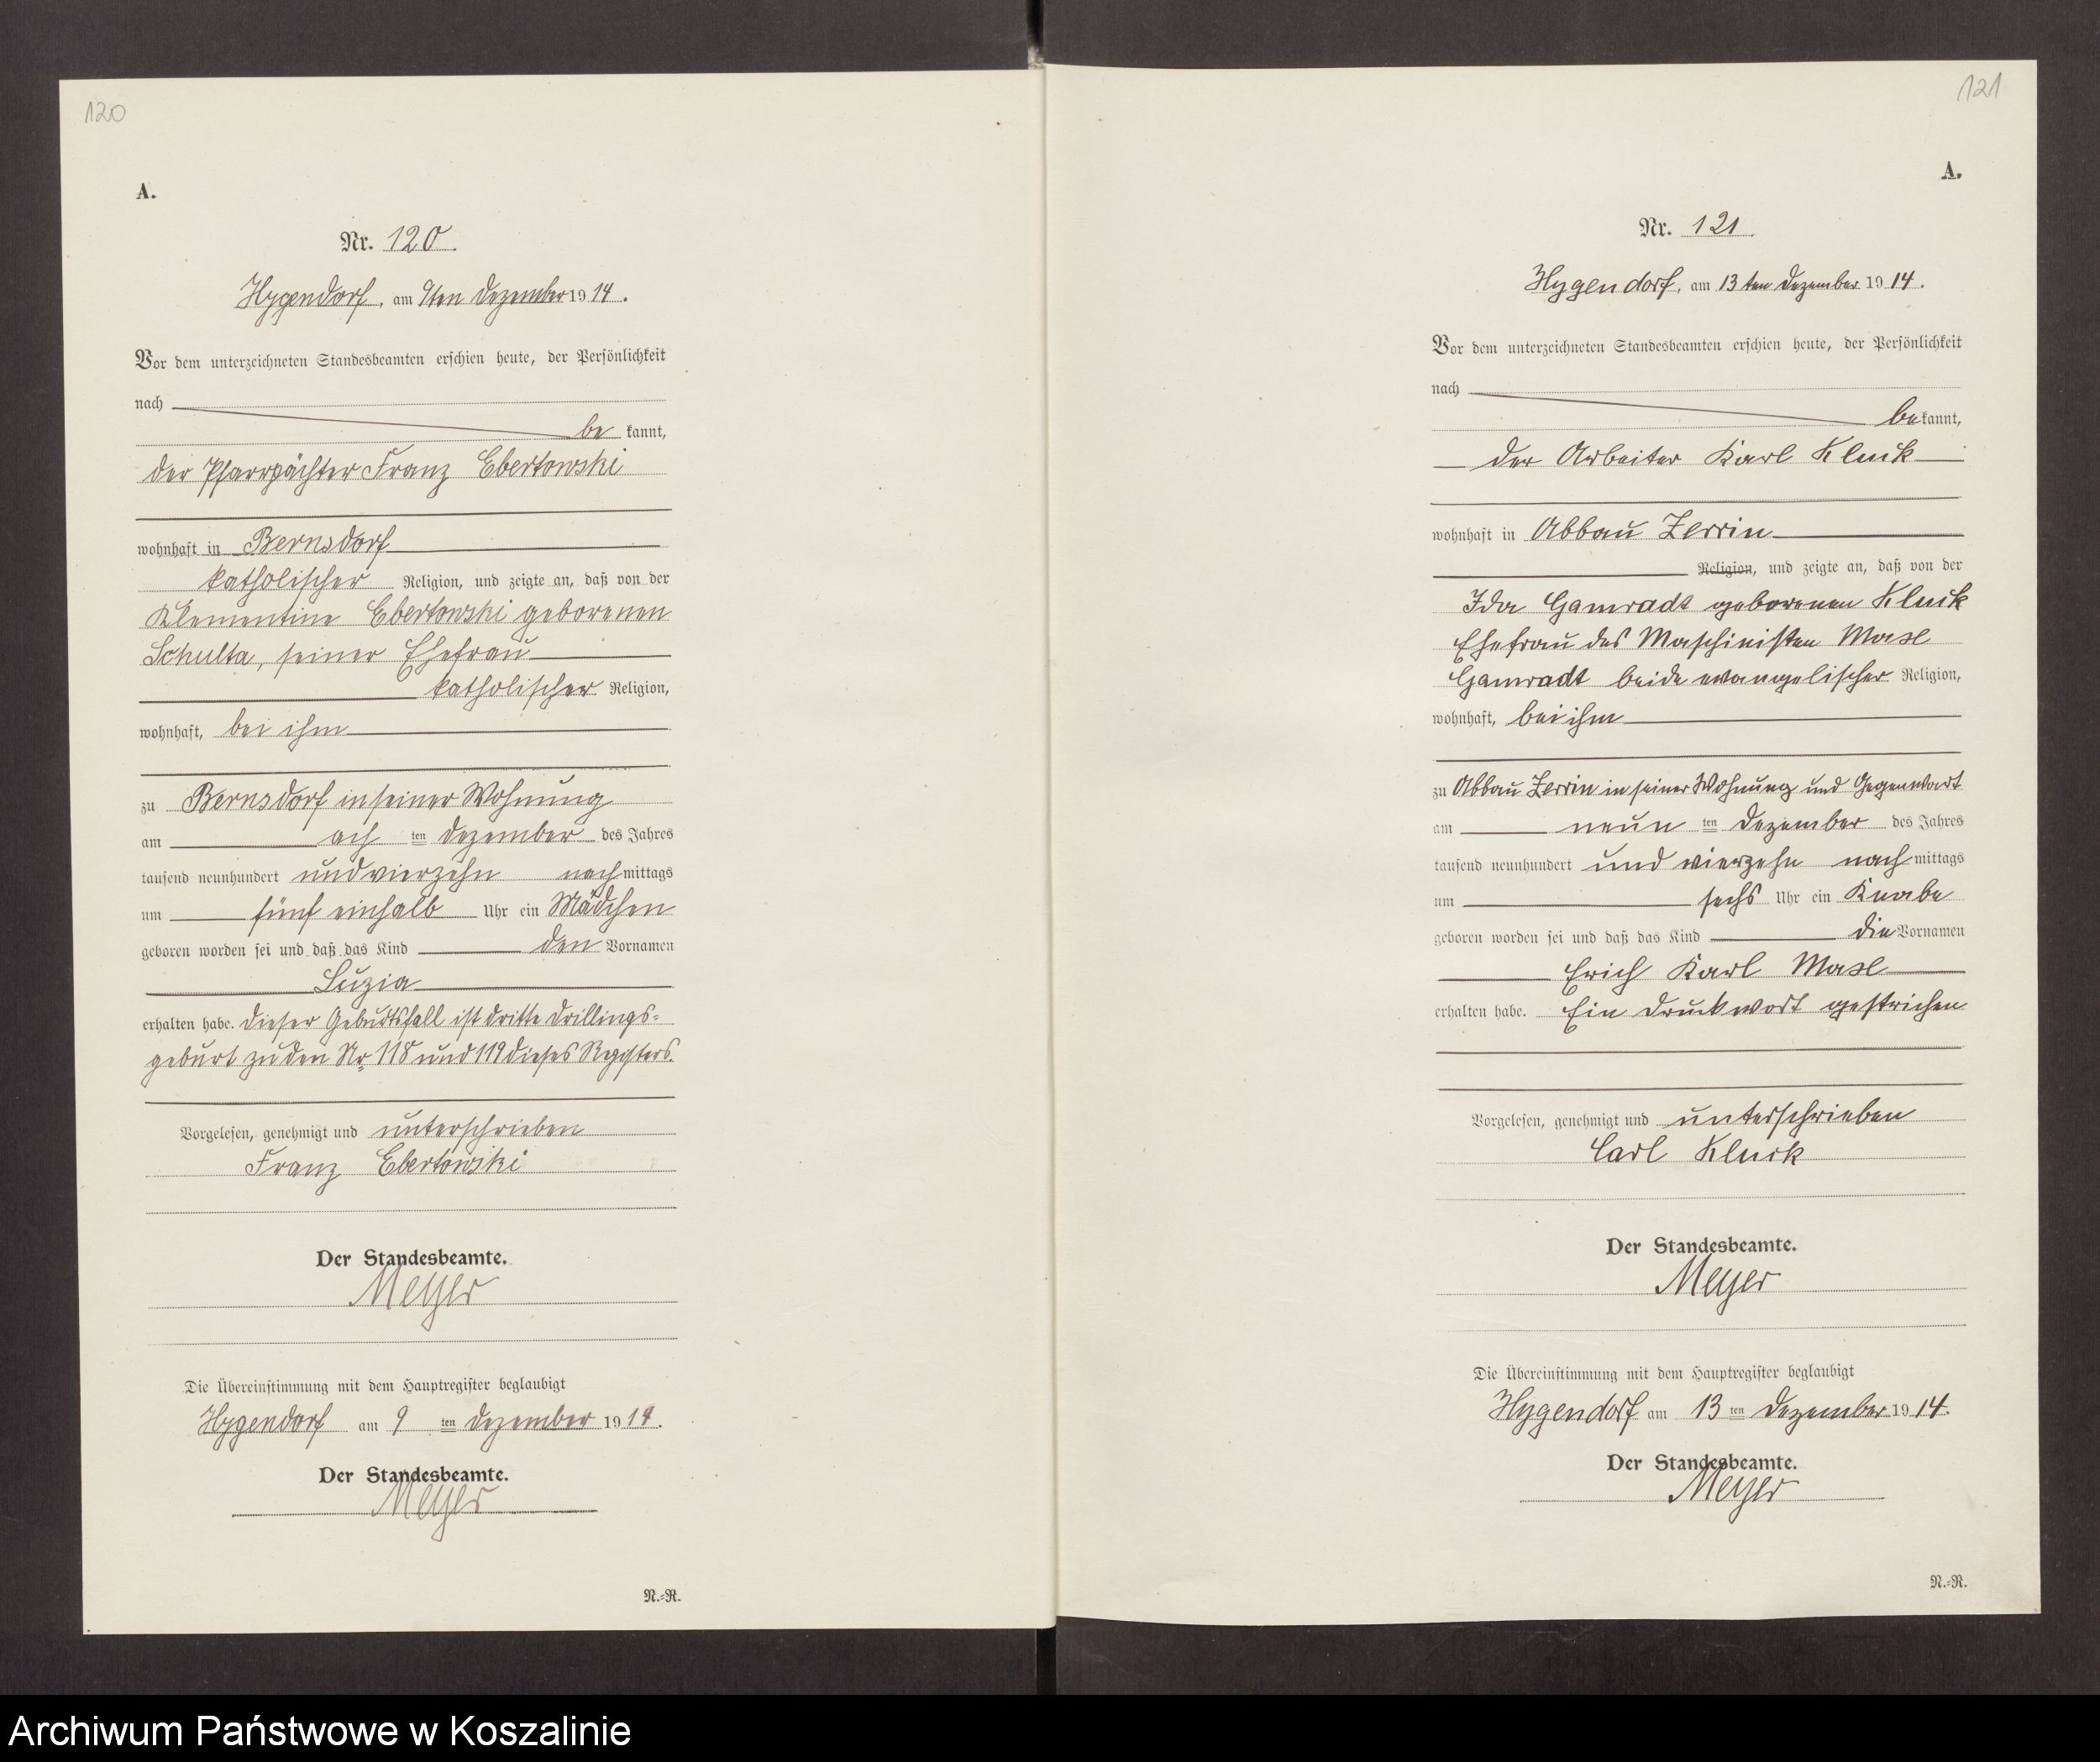 120
A.
Nr. 120.
Hygendorf, am 9ten Dezember 1914.
Vor dem unterzeichneten Standesbeamten erschien heute, der Persönlichkeit
nach
be kannt,
der Pfarrpächter Franz Ebertowski
wohnhaft in Bernsdorf
katholischer Religion, und zeigte an, daß von der
Klementine Ebertowski geborenen
Schulta, seiner Ehefrau
katholischer Religion,
wohnhaft, bei ihm
zu Bernsdorf in seiner Wohnung
am ach ten Dezember des Jahres
tausend neunhundert und vierzehn nach mittags
um fünf einhalb Uhr ein Mädchen
geboren worden sei und daß das Kind den Vornamen
Luzia
erhalten habe. Dieser Geburtsfall ist dritte Drillings-
geburt zu den Nr. 118 und 119 dieses Registers.
Vorgelesen, genehmigt und unterschrieben
Franz Ebertowski
Der Standesbeamte.
Meyer
Die Übereinstimmung mit dem Hauptregister beglaubigt
Hygendorf am 9 ten Dezember 1914.
Der Standesbeamte.
Meyer
N.-R.
121
A.
Nr. 121.
Hygendorf, am 13ten Dezember 1914.
Vor dem unterzeichneten Standesbeamten erschien heute, der Persönlichkeit
nach
bekannt,
der Arbeiter Karl Kluck
wohnhaft in Abbau Zerrin
Religion, und zeigte an, daß von der
Ida Gamradt geborenen Kluck
Ehefrau des Maschinisten Max
Gamradt beide evangelischer Religion,
wohnhaft, bei ihm
zu Abbau Zerrin in seiner Wohnung und Gegenwart
am neun ten Dezember des Jahres
tausend neunhundert und vierzehn nach mittags
um sechs Uhr ein Knabe
geboren worden sei und daß das Kind die Vornamen
Erich Karl Max
erhalten habe. Ein Druckwort gestrichen
Vorgelesen, genehmigt und unterschrieben
Carl Kluck
Der Standesbeamte.
Meyer
Die Übereinstimmung mit dem Hauptregister beglaubigt
Hygendorf am 13 ten Dezember 1914.
Der Standesbeamte.
Meyer
N.-R.
Archiwum Państwowe w Koszalinie